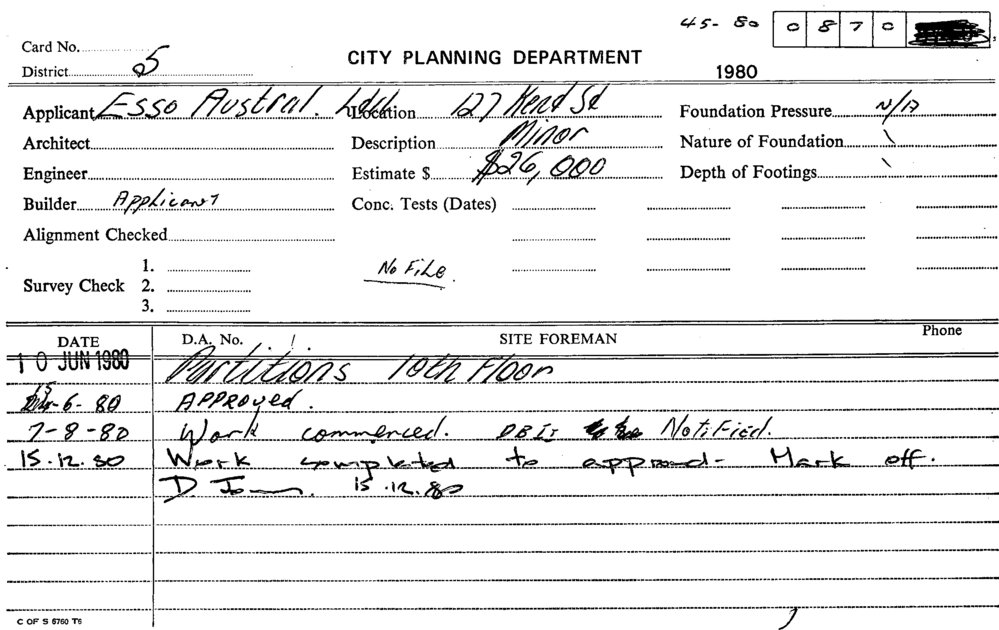 45-80 0 8 7 0
Card No.
District 5
CITY PLANNING DEPARTMENT
1980
Applicant Esso Austral. Ltd. Location 127 Kent St Foundation Pressure N/A
Architect Description Minor Nature of Foundation \
Engineer Estimate $ $26,000 Depth of Footings \
Builder Applicant Conc. Tests (Dates)
Alignment Checked
Survey Check 1.
2.
3.
No File.
DATE D.A. No. SITE FOREMAN Phone
10 JUN 1980 Partitions 10th Floor
-6-80 APPROVED.
7-8-80 Work commenced. Notified.
15.12.80 Work completed to approval- Mark off.
D 15.12.80
C OF S 6760 T6